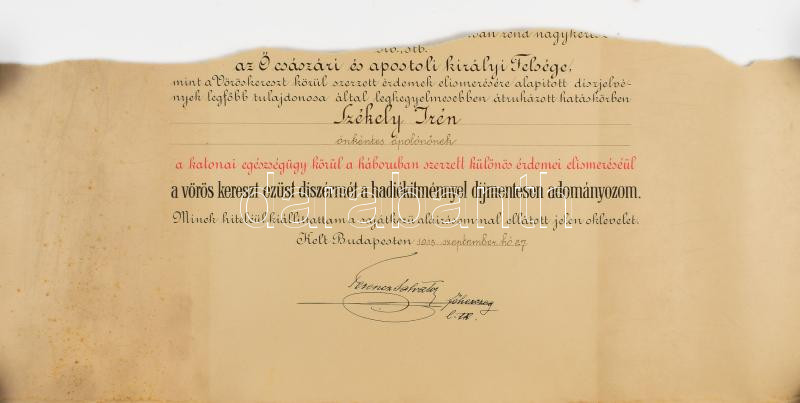 rend nagykere
stb., stb.
az Ő császári és apostoli királyi Felsége,
mint a Vöröskereszt körül szerzett érdemek elismerésére alapított díszjelvé-
nyek legfőbb tulajdonosa által legkegyelmesebben átruházott hatáskörben
Székely Irén
önkéntes ápolónőnek
a katonai egészségügy körül a háboruban szerzett különös érdemei elismeréséül
a vörös kereszt ezüst díszérmét a hadiékítménnyel díjmentesen adományozom.
Minek hiteléül kiállíttattam a sajátkezü aláirásommal ellátott jelen oklevelet.
Kelt Budapesten 1915 szeptember hó 27
Ferencz Salvator
főherczeg
darabanth